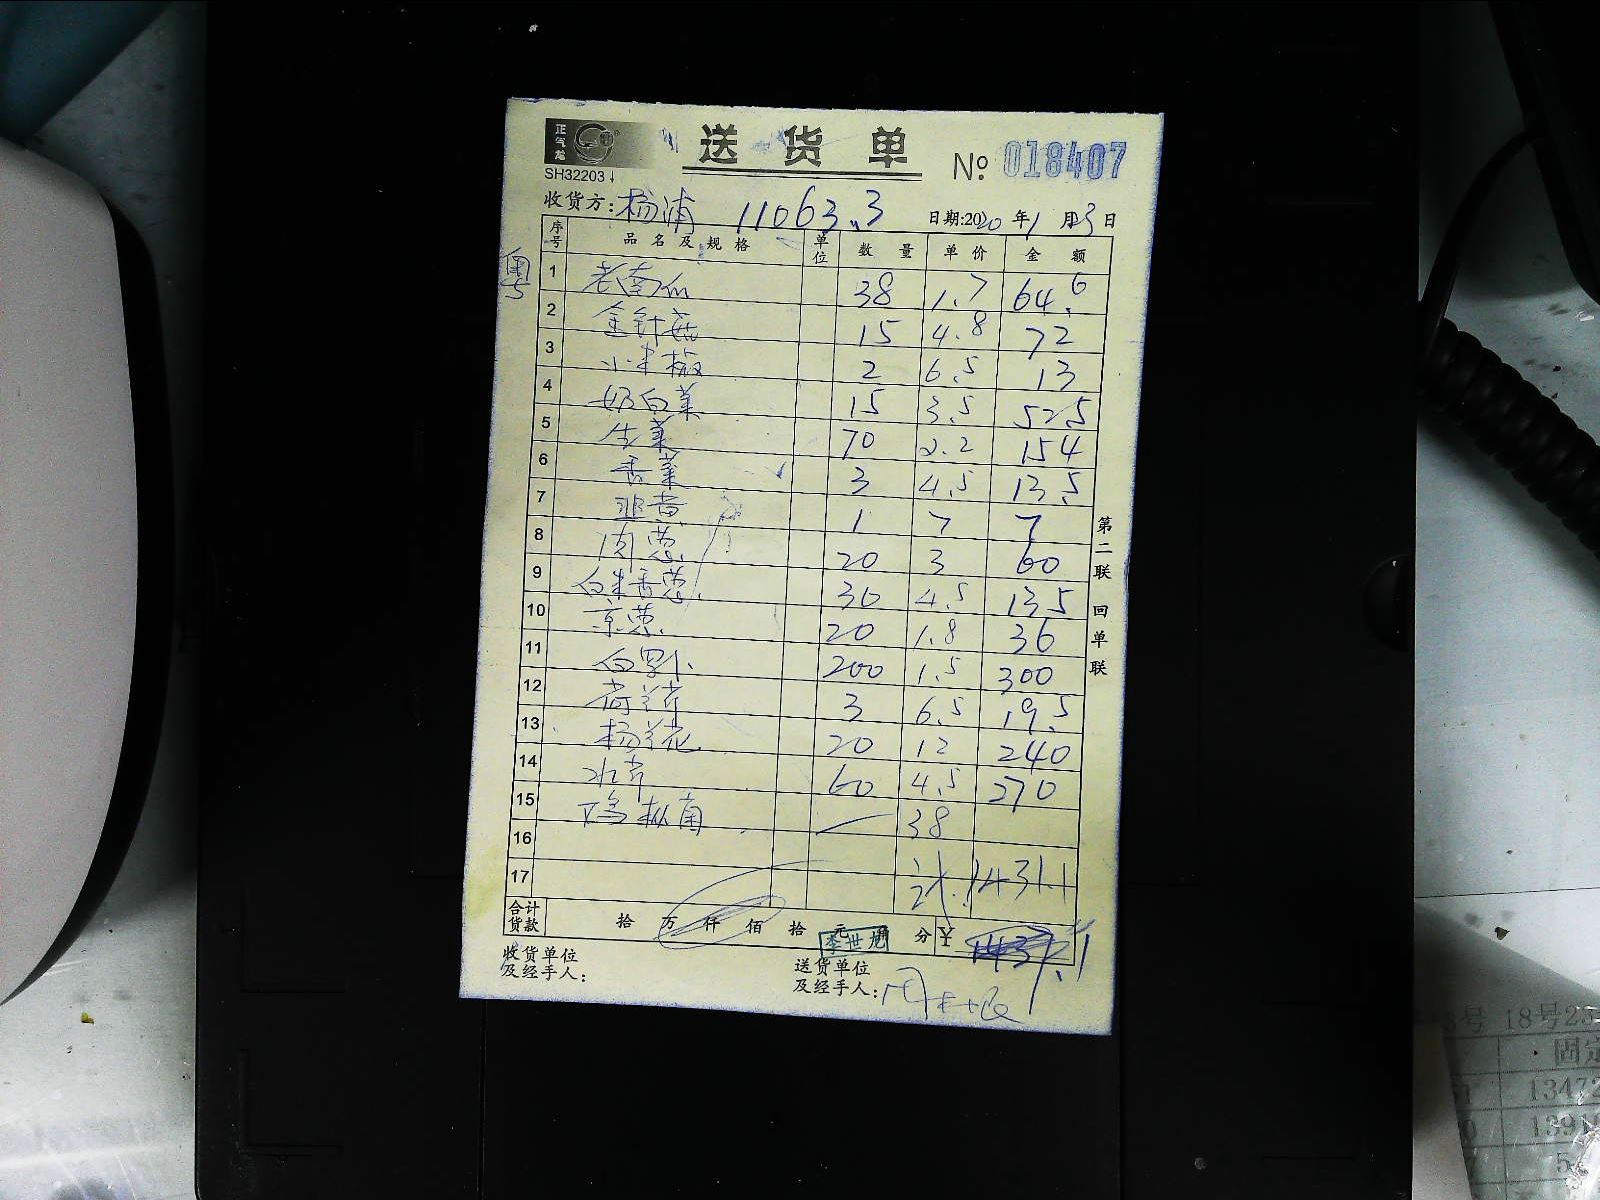 正气龙
送货单
SH32203
No. 018407
收货方: 杨浦 11063.3 日期:2020年1月3日
序号 品名及规格 单位 数量 单价 金额
粤5
1 老南瓜 38 1.7 64.6
2 金针菇 15 4.8 72
3 小米椒 2 6.5 13
4 奶白菜 15 3.5 52.5
5 生菜 70 2.2 154
6 香菜 3 4.5 13.5
7 韭黄 1 7 7
8 肉葱 20 3 60
9 白米香葱 30 4.5 135
10 京葱 20 1.8 36
11 白罗卜 200 1.5 300
12 荷兰芹 3 6.5 19.5
13 杨兰花 20 12 240
14 水芹 60 4.5 270
15 鸡枞菌 38
16
17 计 1431.1
合计货款 拾 万 仟 佰 拾 元 角 分 ¥ 1437.1
李世旭
收货单位及经手人:
送货单位及经手人:
第二联 回单联
18号
固定